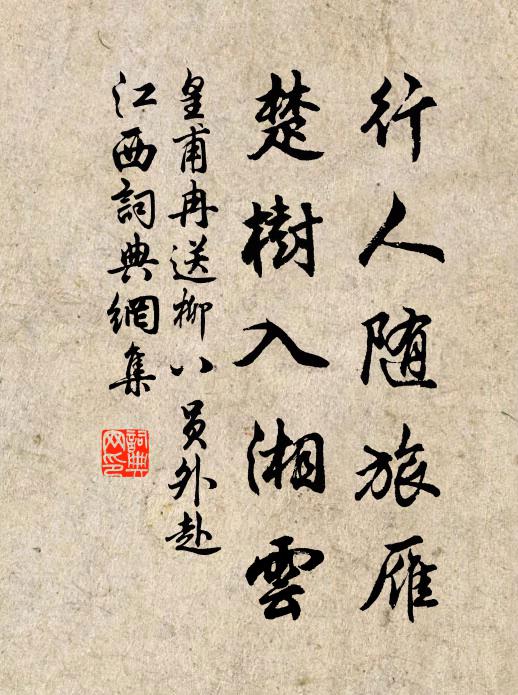 行人随旅雁
楚樹入湘雲
皇甫冉送柳八员外赴
江西詞典網集
詞典
网印